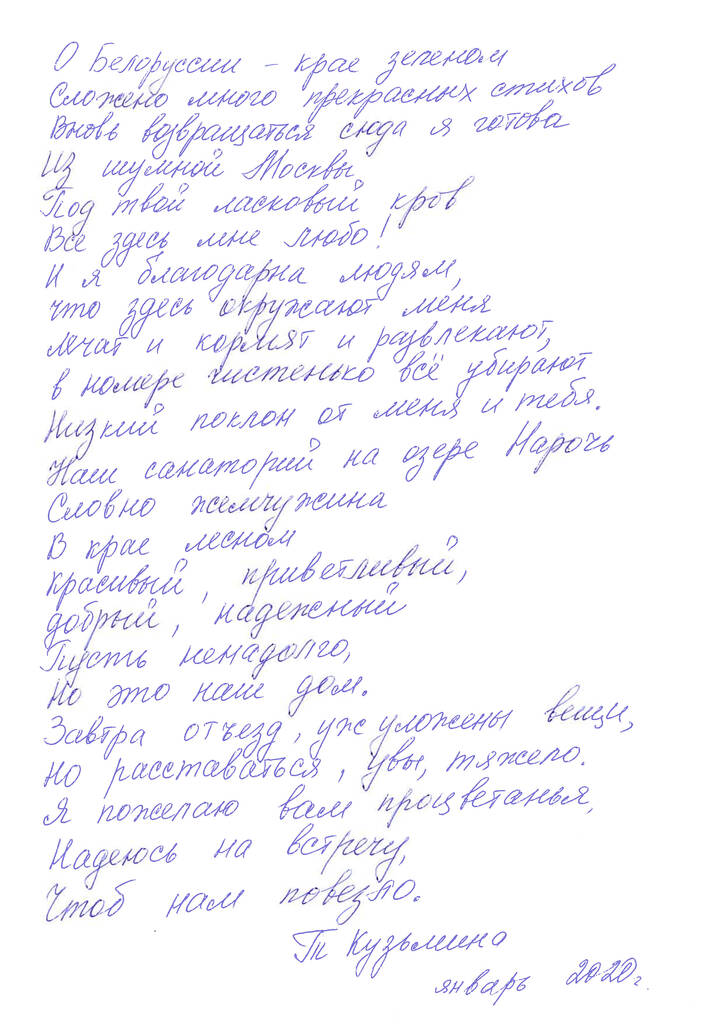 О Белоруссии – крае зеленом
Сложено много прекрасных стихов
Вновь возвращаться сюда я готова
Из шумной Москвы
Под твой ласковый кров
Все здесь мне любо!
И я благодарна людям,
что здесь окружают меня
лечат и кормят и развлекают,
в номере чистенько всё убирают
Низкий поклон от меня и тебя.
Наш санаторий на озере Нарочь
Словно жемчужина
В крае лесном
красивый, приветливый,
добрый, надежный
Пусть ненадолго,
Но это наш дом.
Завтра отъезд, уж уложены вещи,
Но расставаться, увы, тяжело.
Я пожелаю вам процветанья,
Надеюсь на встречу,
Чтоб нам повезло.
Кузьмина
январь 2020г.